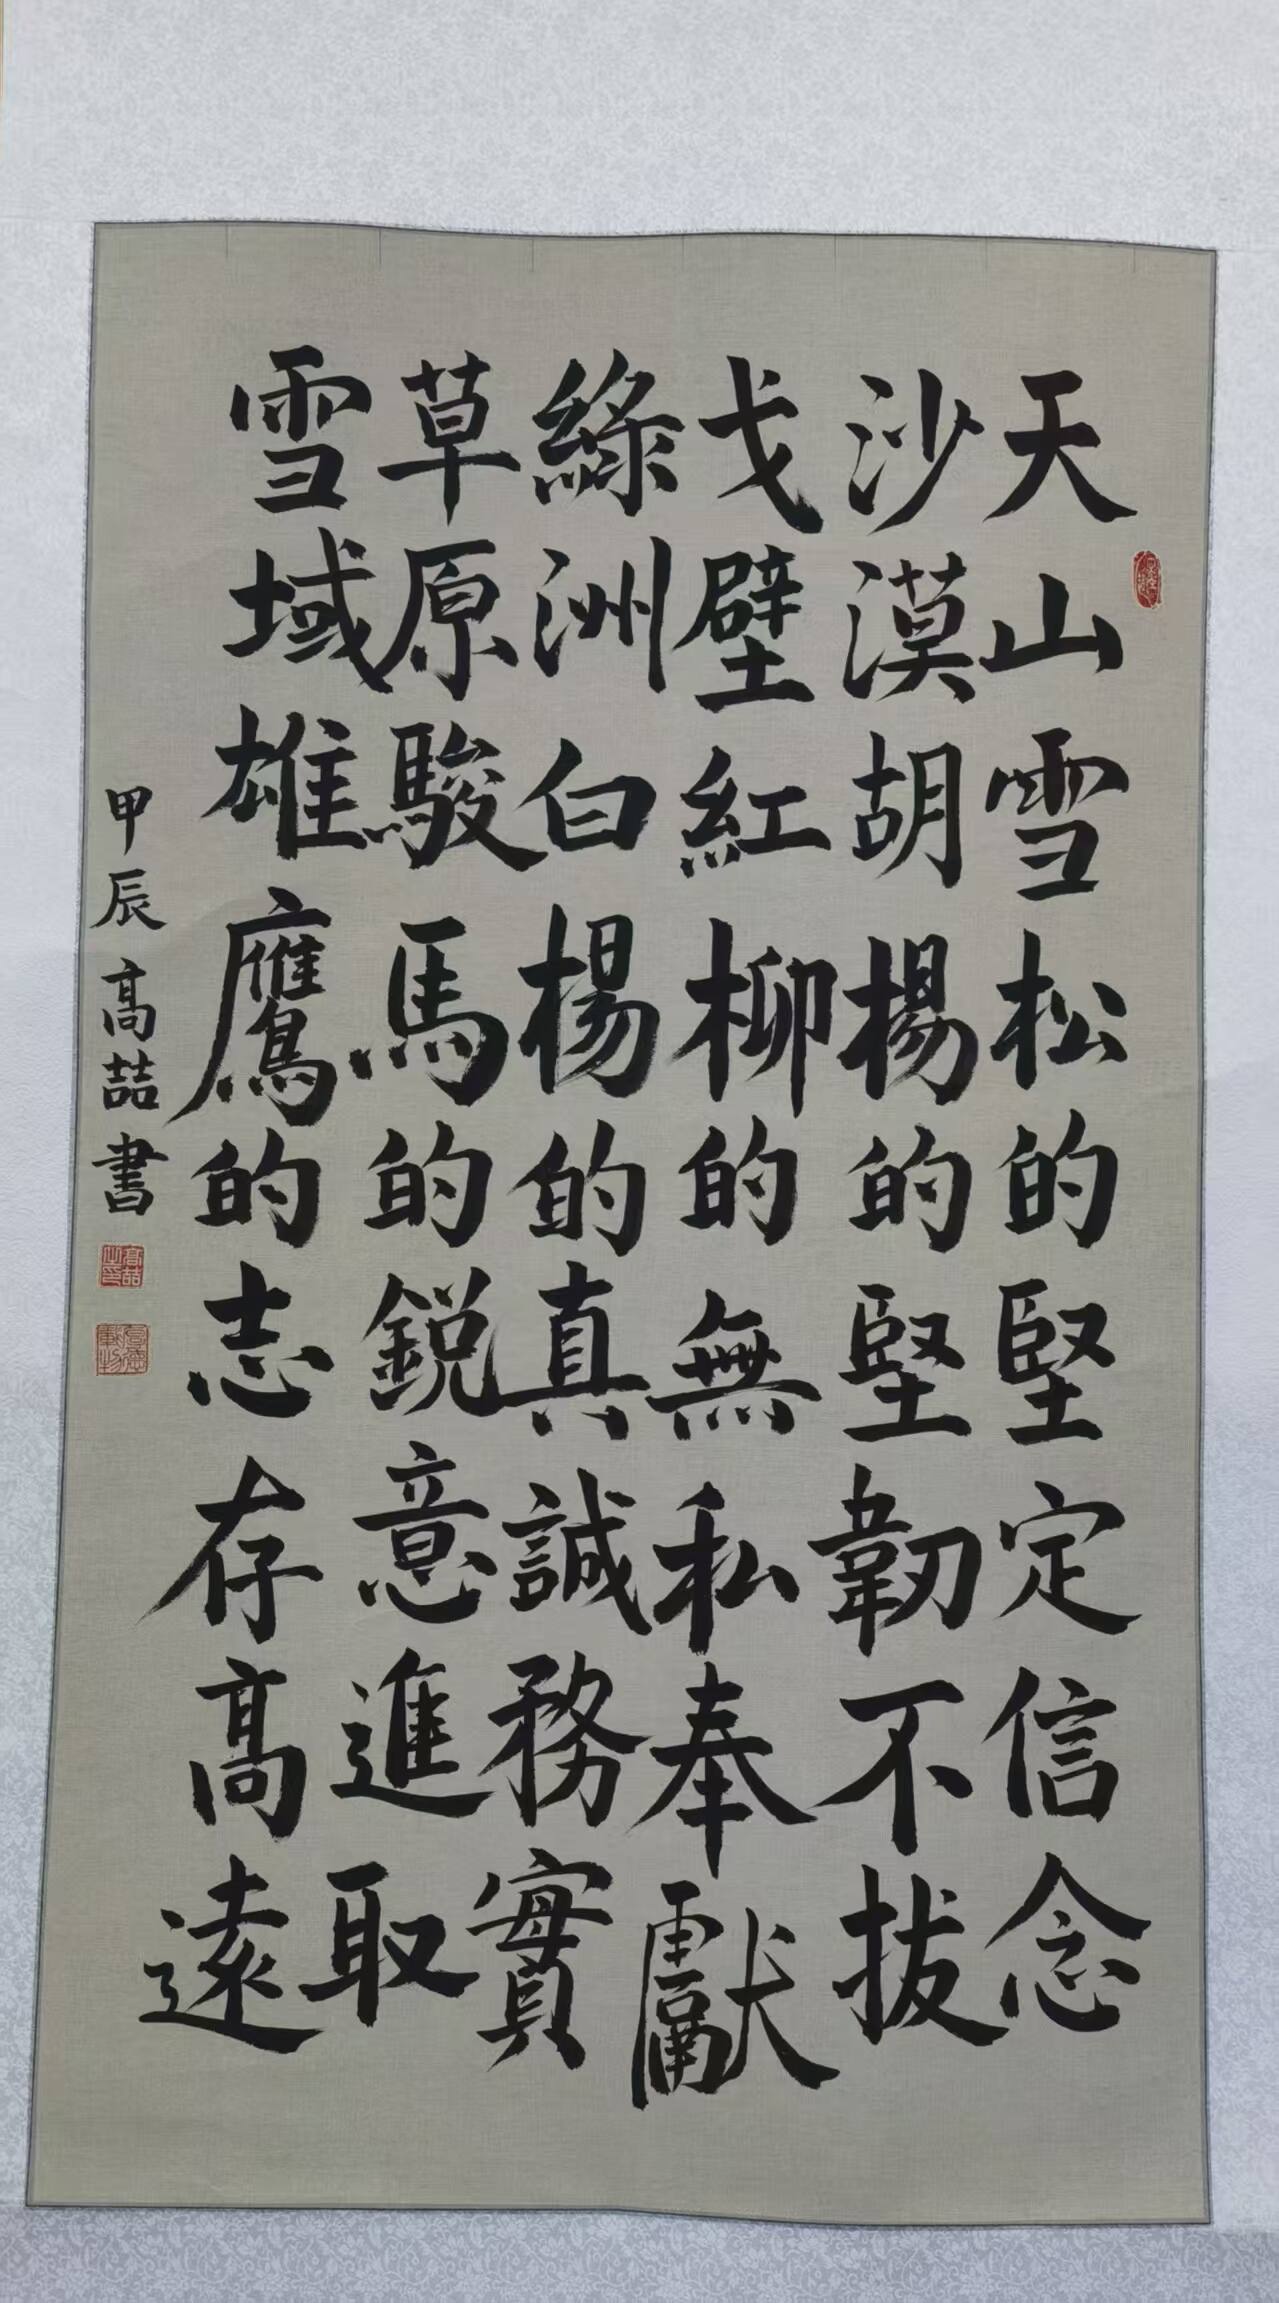 天山雪松的堅定信念
沙漠胡楊的堅韌不拔
戈壁紅柳的無私奉獻
綠洲白楊的真誠務實
草原駿馬的鋭意進取
雪域雄鷹的志存高遠
甲辰高喆書
高喆之印